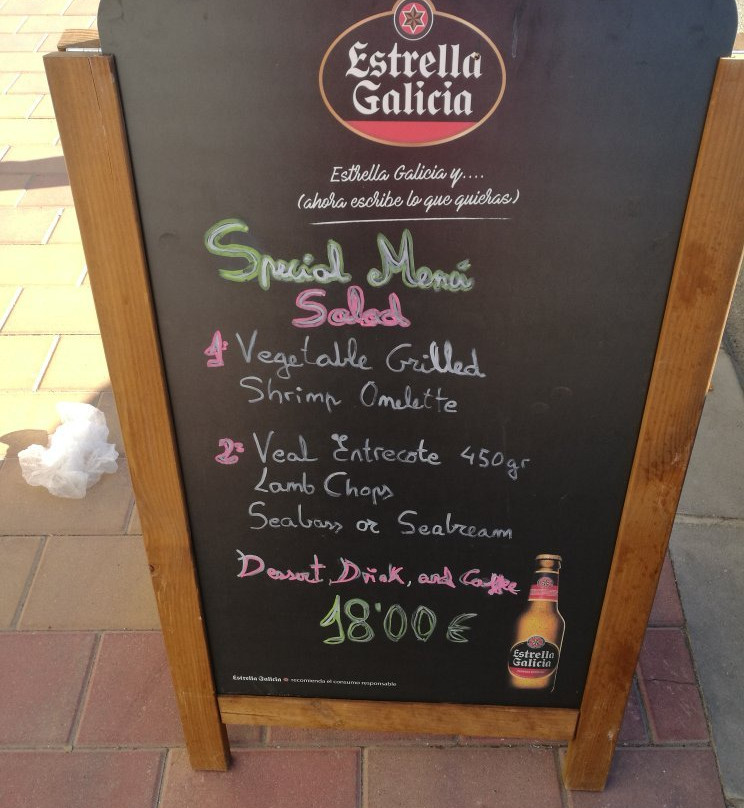 Estrella
Galicia
Estrella Galicia y....
(ahora escribe lo que quieras)
Special Menú
Salad
1º Vegetable Grilled
Shrimp Omelette
2º Veal Entrecote 450gr
Lamb Chops
Seabass or Seabream
Dessert, Drink, and Coffee
18'00 €
Estrella
Galicia
Estrella Galicia recomienda el consumo responsable